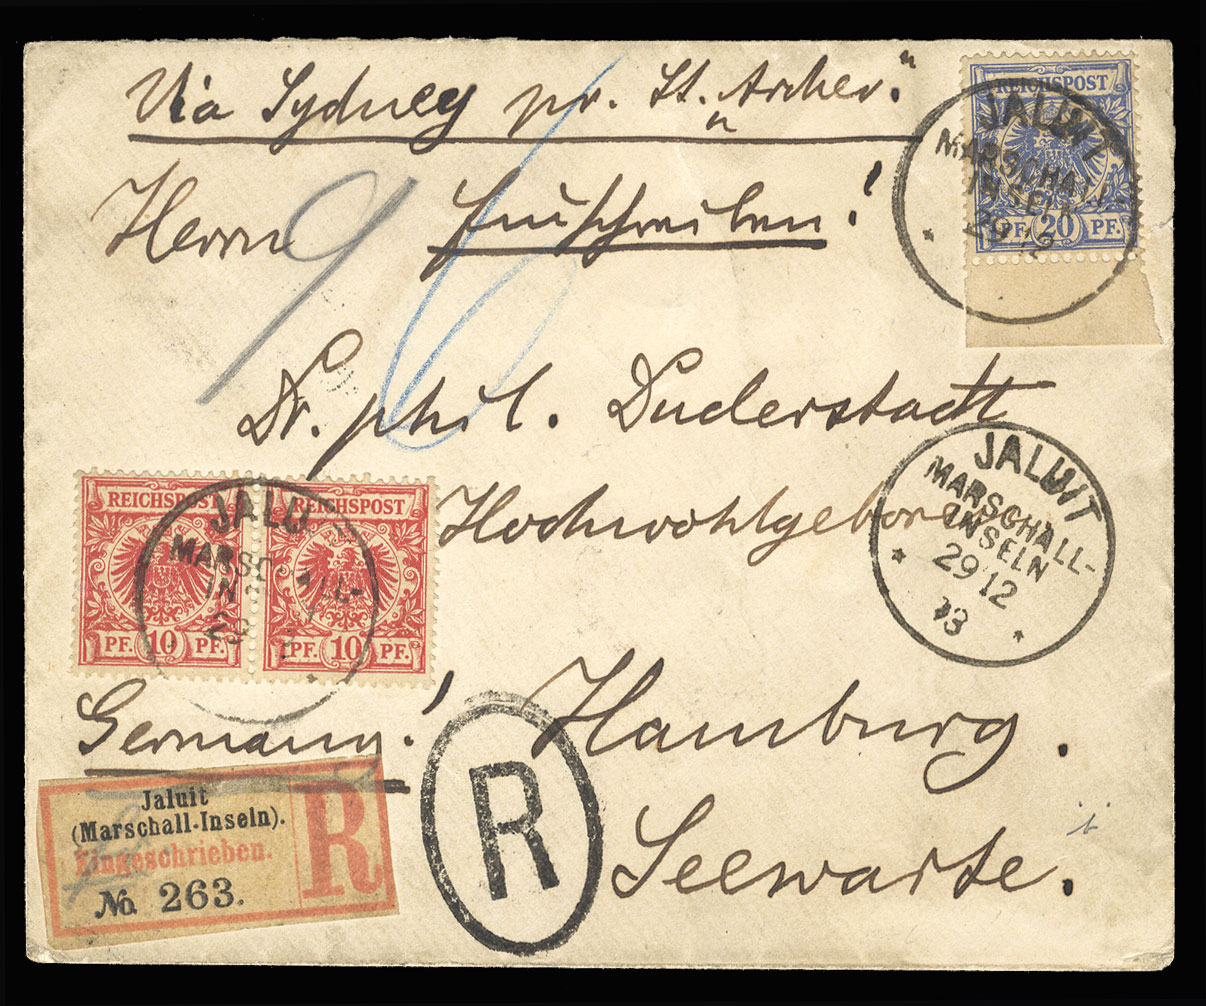 Via Sydney pr. St. „Archer."
Herrn Einschreiben!
REICHSPOST
PF. 20 PF.
JALUIT
MARSCHALL-
INSELN
29 12
Dr. phil. Duderstadt
Hochwohlgeboren
JALUIT
MARSCHALL-
INSELN
29 12
93
REICHSPOST REICHSPOST
PF. 10 PF. PF. 10 PF.
JALUIT
MARSCHALL-
INSELN
29
Germany! Hamburg.
Seewarte.
R
Jaluit
(Marschall-Inseln).
Eingeschrieben.
No. 263.
R